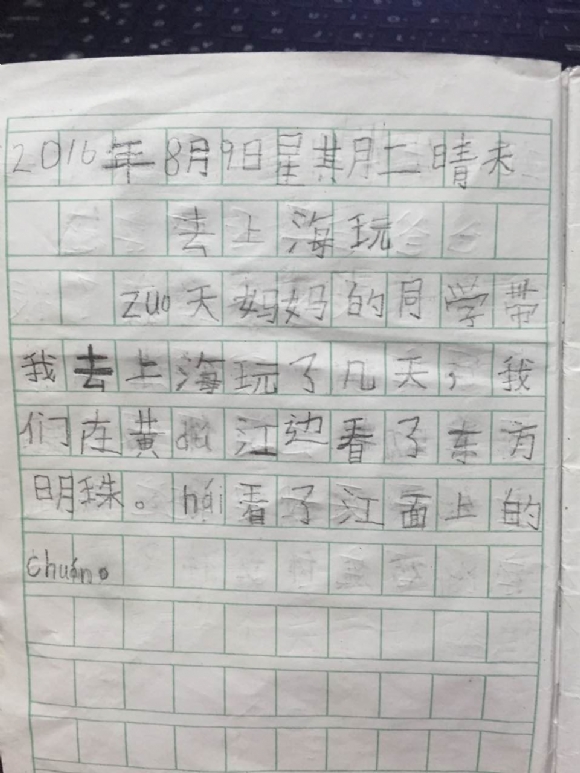 2016年8月9日星其月二晴天
去上海玩
zuo天妈妈的同学带
我去上海玩了几天我
们在黄 江边看了东方
明珠。hái看了江面上的
chuán。